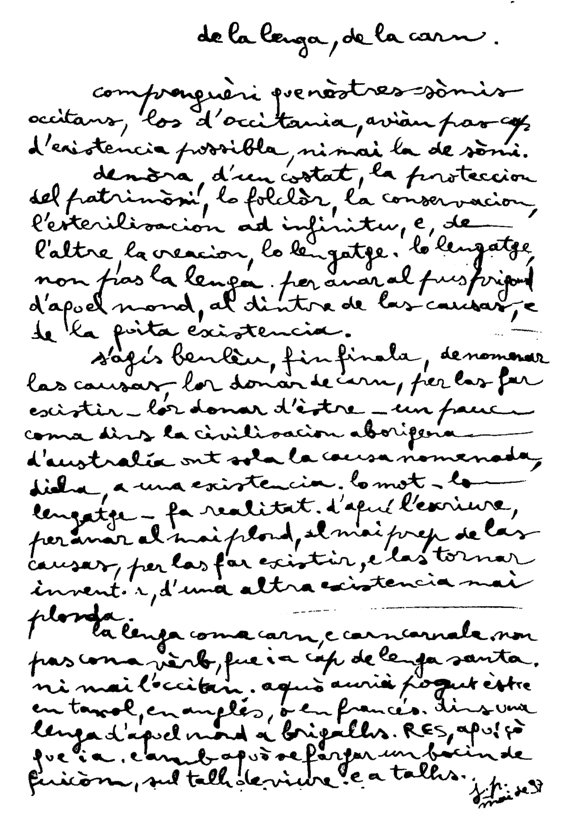 de la lenga, de la carn.
comprenguèri que nòstres sòmis
occitans, los d'occitania, avián pas cap
d'existencia possibla, ni mai la de sòmi.
demòra, d'un costat, la proteccion
del patrimòni, lo folclòr, la conservacion,
l'esterilisacion ad infinitu, e, de
l'altre, la creacion, lo lengatge. lo lengatge,
non pas la lenga. per anar al pus prigond
d'aquel mond, al dintre de las causas, e
de la puta existencia.
s'agís benlèu, fin finala, de nomenar
las causas, lor donar de carn, per las far
existir - lor donar d'èstre - un pauc
coma dins la civilisacion aborigena
d'australia ont sola la causa nomenada,
dicha, a una existencia. lo mot - lo
lengatge - fa realitat. d'aquí l'escriure,
per anar al mai plond, al mai prep de las
causas, per las far existir, e las tornar
invent r, d'una altra existencia mai
plonda.
la lenga coma carn, e carn carnala. non
pas coma vèrb, que i a cap de lenga santa.
ni mai l'occitan. aquò auriá pogut èstre
en tamol, en anglés, o en francés. dins una
lenga d'aquel mond a brigalhs. RES, aquí çò
que i a. e amb aquò se forjar un bocin de
quicòm, sul talh de viure. e a talhs.
j.p.
mai de 97